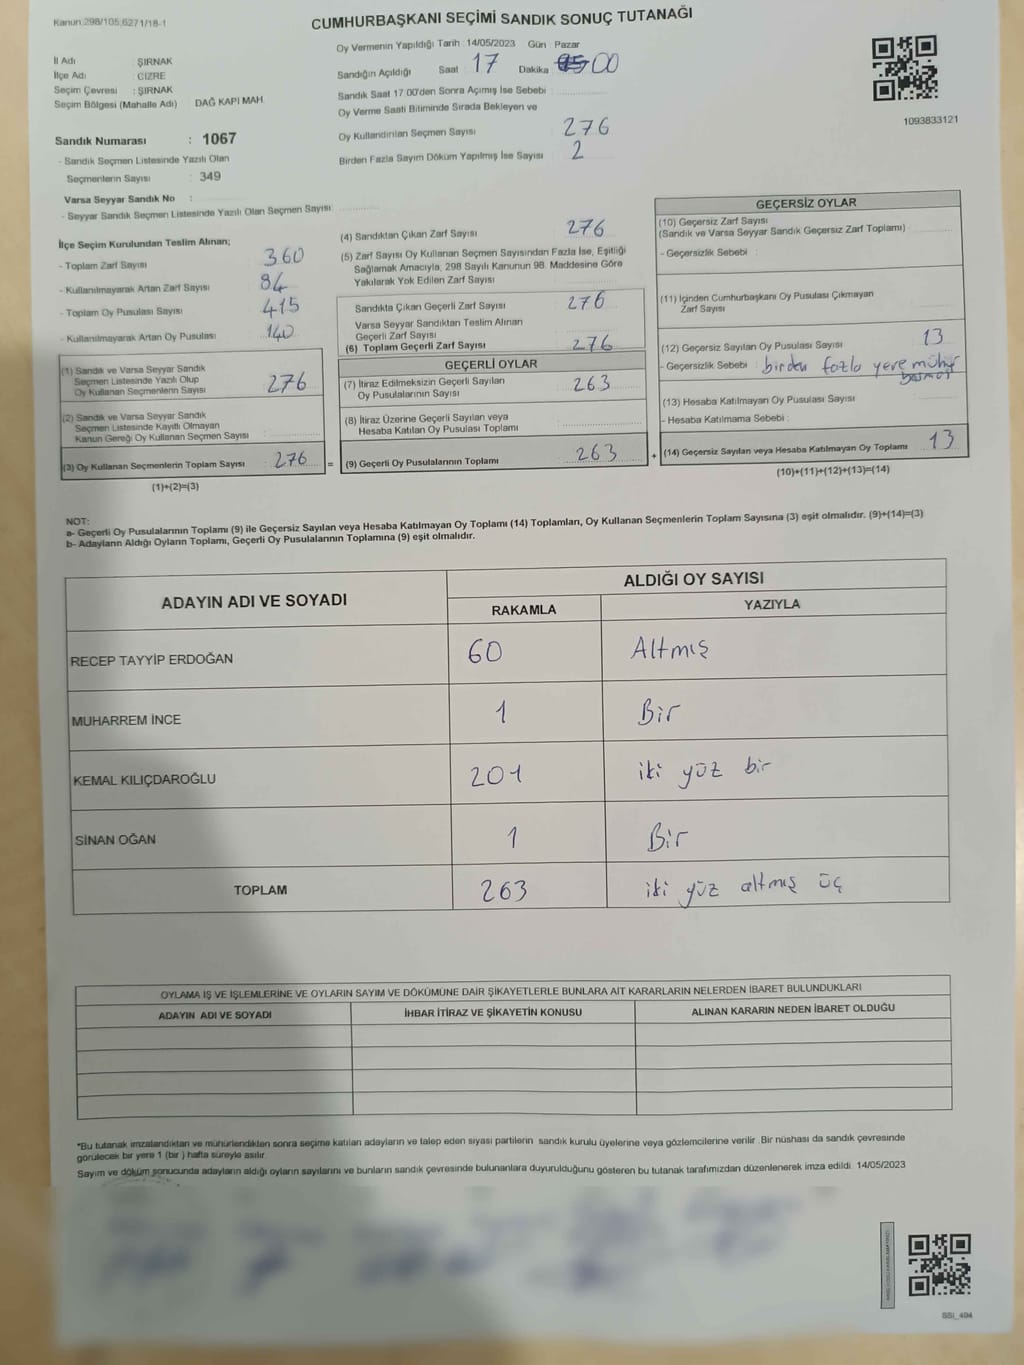 Kanun:298/105,6271/18-1
CUMHURBAŞKANI SEÇİMİ SANDIK SONUÇ TUTANAĞI
İl Adı : ŞIRNAK
İlçe Adı : CİZRE
Seçim Çevresi : ŞIRNAK
Seçim Bölgesi (Mahalle Adı) DAĞ KAPI MAH
Sandık Numarası : 1067
- Sandık Seçmen Listesinde Yazılı Olan
Seçmenlerin Sayısı : 349
Varsa Seyyar Sandık No :
- Seyyar Sandık Seçmen Listesinde Yazılı Olan Seçmen Sayısı:
Oy Vermenin Yapıldığı Tarih :14/05/2023 Gün : Pazar
Sandığın Açıldığı Saat 17 Dakika 00
Sandık Saat 17.00'den Sonra Açılmış İse Sebebi :
Oy Verme Saati Bitiminde Sırada Bekleyen ve
Oy Kullandırılan Seçmen Sayısı : 276
Birden Fazla Sayım Döküm Yapılmış İse Sayısı : 2
1093833121
İlçe Seçim Kurulundan Teslim Alınan;
- Toplam Zarf Sayısı : 360
- Kullanılmayarak Artan Zarf Sayısı : 84
- Toplam Oy Pusulası Sayısı : 415
- Kullanılmayarak Artan Oy Pusulası : 140
(1) Sandık ve Varsa Seyyar Sandık
Seçmen Listesinde Yazılı Olup
Oy Kullanan Seçmenlerin Sayısı : 276
(2) Sandık ve Varsa Seyyar Sandık
Seçmen Listesinde Kayıtlı Olmayan
Kanun Gereği Oy Kullanan Seçmen Sayısı :
(3) Oy Kullanan Seçmenlerin Toplam Sayısı : 276 =
(1)+(2)=(3)
(4) Sandıktan Çıkan Zarf Sayısı : 276
(5) Zarf Sayısı Oy Kullanan Seçmen Sayısından Fazla İse, Eşitliği
Sağlamak Amacıyla, 298 Sayılı Kanunun 98. Maddesine Göre
Yakılarak Yok Edilen Zarf Sayısı :
Sandıkta Çıkan Geçerli Zarf Sayısı : 276
Varsa Seyyar Sandıktan Teslim Alınan
Geçerli Zarf Sayısı :
(6) Toplam Geçerli Zarf Sayısı : 276
GEÇERLİ OYLAR
(7) İtiraz Edilmeksizin Geçerli Sayılan
Oy Pusulalarının Sayısı : 263
(8) İtiraz Üzerine Geçerli Sayılan veya
Hesaba Katılan Oy Pusulası Toplamı :
(9) Geçerli Oy Pusulalarının Toplamı : 263 +
GEÇERSİZ OYLAR
(10) Geçersiz Zarf Sayısı
(Sandık ve Varsa Seyyar Sandık Geçersiz Zarf Toplamı) :
- Geçersizlik Sebebi :
(11) İçinden Cumhurbaşkanı Oy Pusulası Çıkmayan
Zarf Sayısı
(12) Geçersiz Sayılan Oy Pusulası Sayısı : 13
- Geçersizlik Sebebi : birden fazla yere mühür
basmış
(13) Hesaba Katılmayan Oy Pusulası Sayısı :
- Hesaba Katılmama Sebebi :
(14) Geçersiz Sayılan veya Hesaba Katılmayan Oy Toplamı : 13
(10)+(11)+(12)+(13)=(14)
NOT:
a- Geçerli Oy Pusulalarının Toplamı (9) ile Geçersiz Sayılan veya Hesaba Katılmayan Oy Toplamı (14) Toplamları, Oy Kullanan Seçmenlerin Toplam Sayısına (3) eşit olmalıdır. (9)+(14)=(3)
b- Adayların Aldığı Oyların Toplamı, Geçerli Oy Pusulalarının Toplamına (9) eşit olmalıdır.
ADAYIN ADI VE SOYADI
ALDIĞI OY SAYISI
RAKAMLA YAZIYLA
RECEP TAYYİP ERDOĞAN 60 Altmış
MUHARREM İNCE 1 Bir
KEMAL KILIÇDAROĞLU 201 iki yüz bir
SİNAN OĞAN 1 Bir
TOPLAM 263 iki yüz altmış üç
OYLAMA İŞ VE İŞLEMLERİNE VE OYLARIN SAYIM VE DÖKÜMÜNE DAİR ŞİKAYETLERLE BUNLARA AİT KARARLARIN NELERDEN İBARET BULUNDUKLARI
ADAYIN ADI VE SOYADI İHBAR İTİRAZ VE ŞİKAYETİN KONUSU ALINAN KARARIN NEDEN İBARET OLDUĞU
*Bu tutanak imzalandıktan ve mühürlendikten sonra seçime katılan adayların ve talep eden siyasi partilerin sandık kurulu üyelerine veya gözlemcilerine verilir .Bir nüshası da sandık çevresinde
görülecek bir yere 1 (bir ) hafta süreyle asılır.
Sayım ve döküm sonucunda adayların aldığı oyların sayılarını ve bunların sandık çevresinde bulunanlara duyurulduğunu gösteren bu tutanak tarafımızdan düzenlenerek imza edildi. 14/05/2023